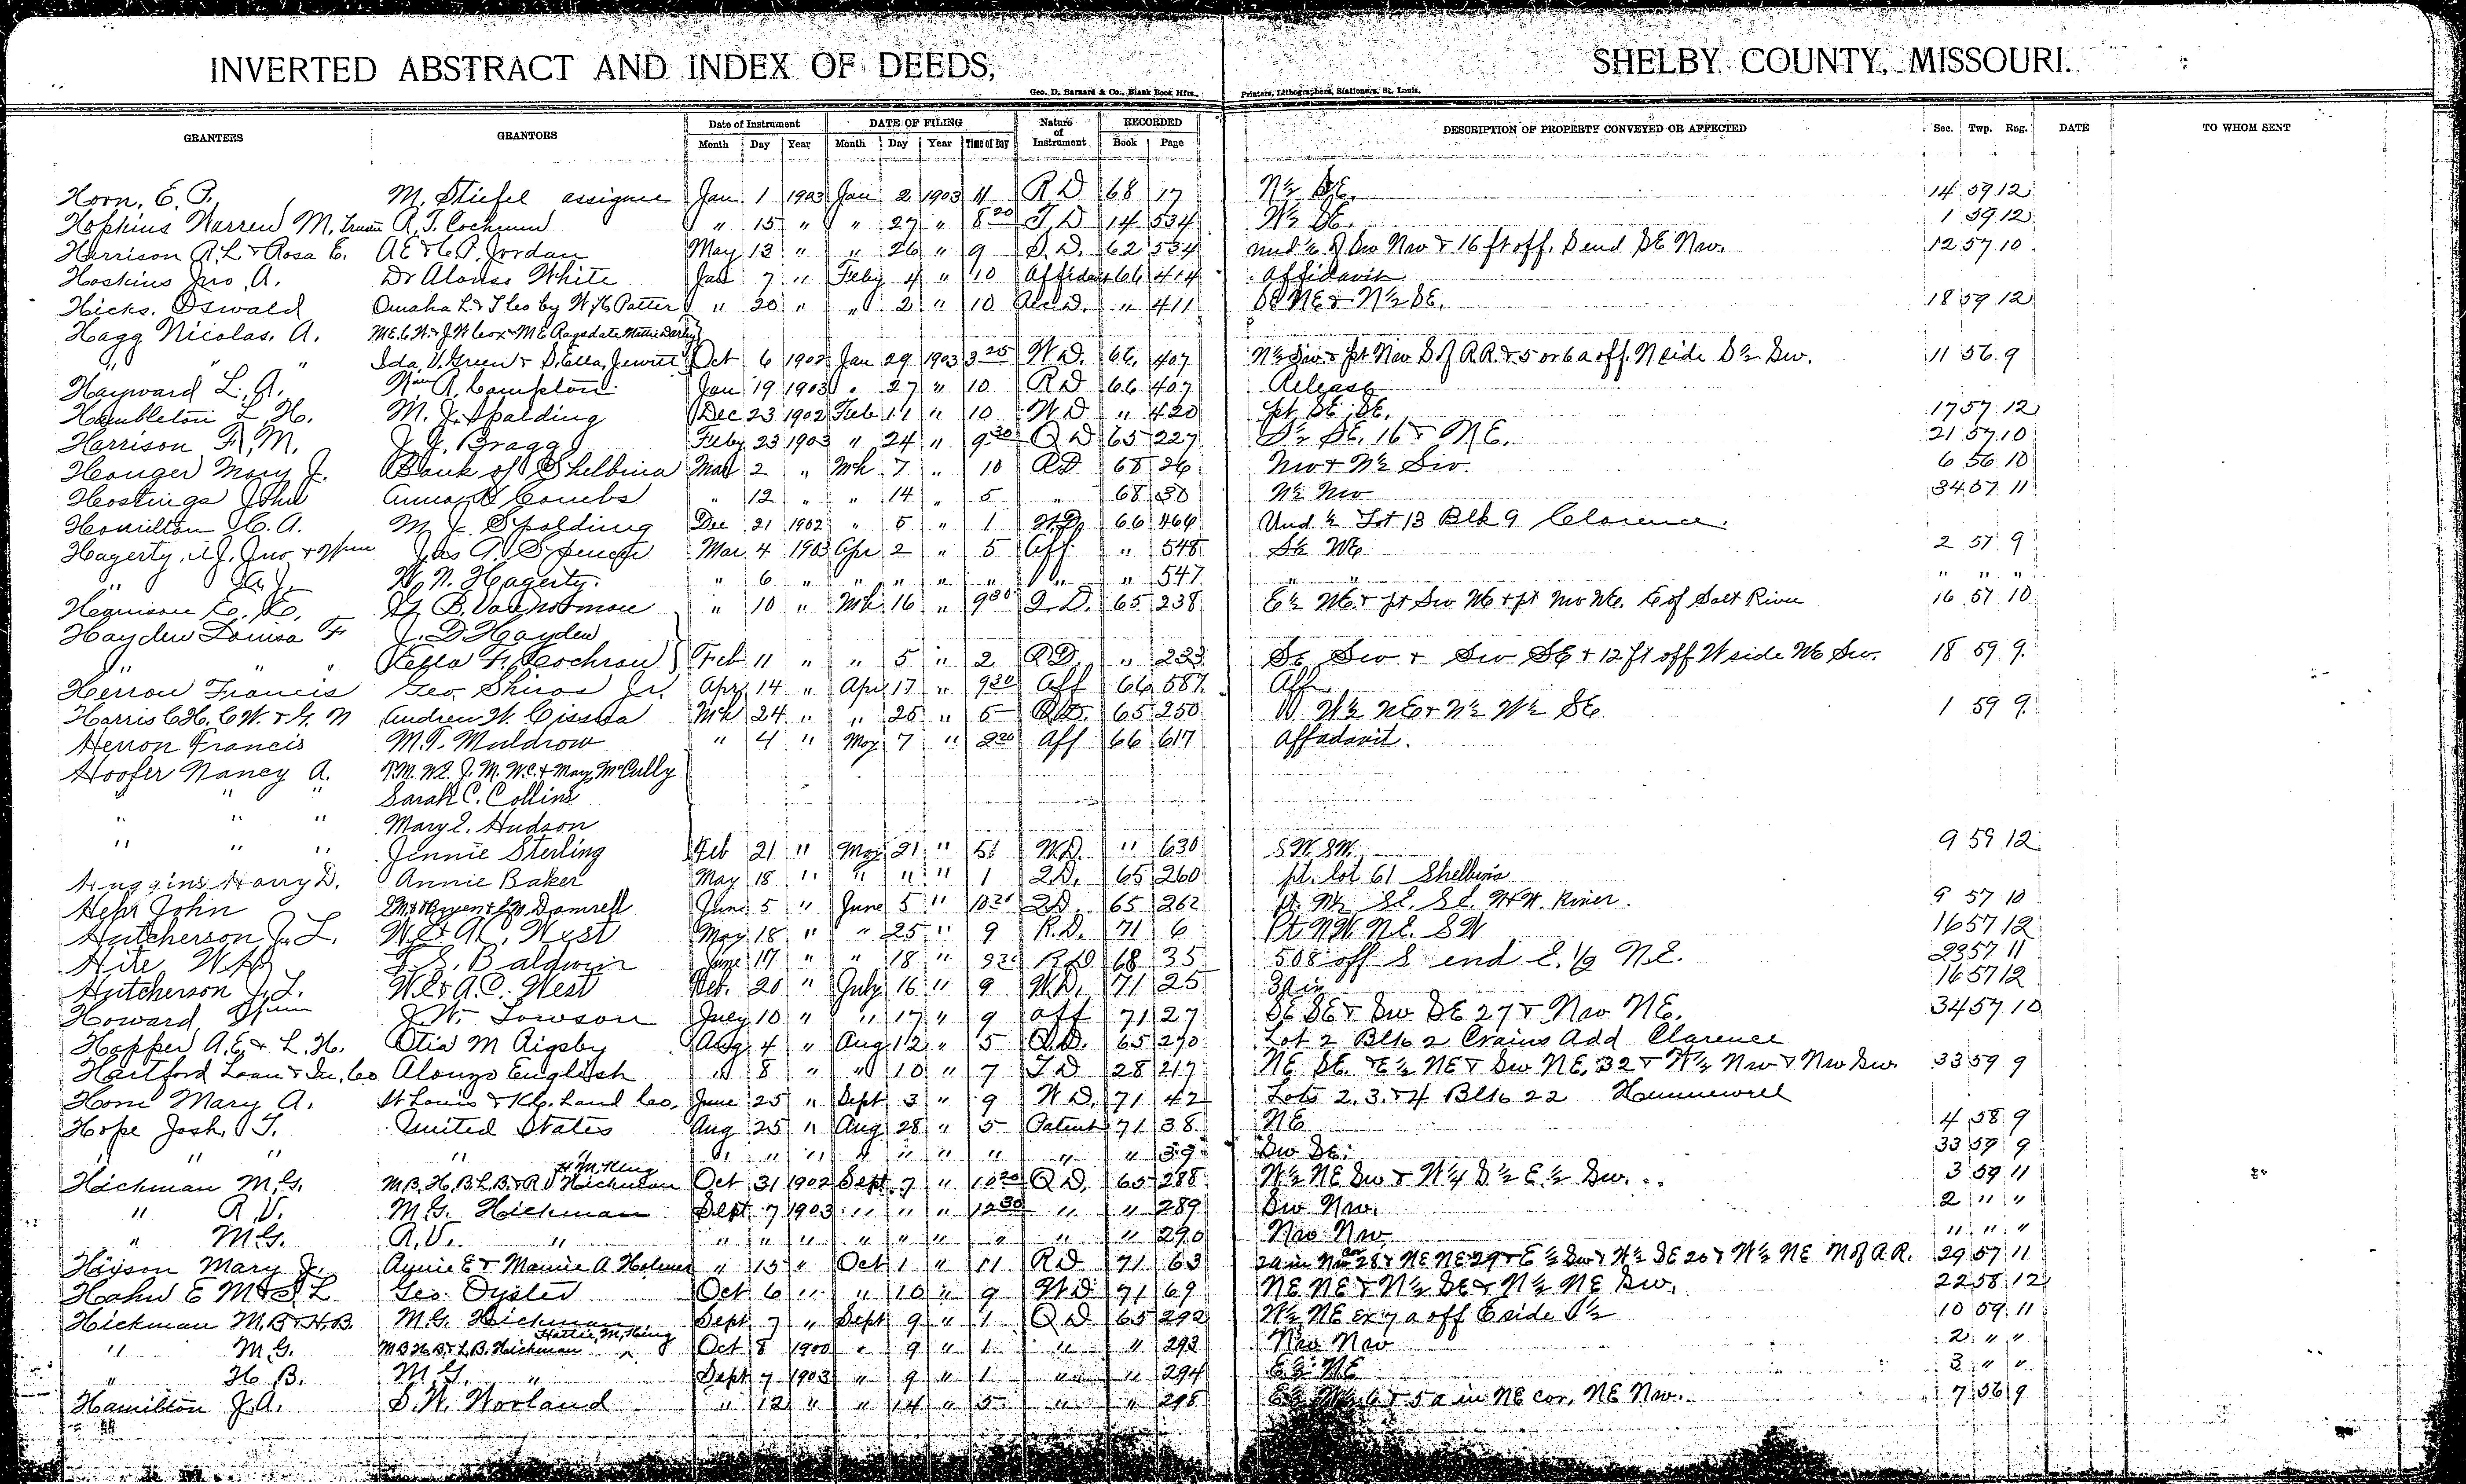 INVERTED ABSTRACT AND INDEX OF DEEDS, SHELBY COUNTY, MISSOURI.
Geo. D. Barnard & Co., Blank Book Mfrs., Printers, Lithographers, Stationers, St. Louis.
GRANTEES GRANTORS Date of Instrument DATE OF FILING Nature of Instrument RECORDED DESCRIPTION OF PROPERTY CONVEYED OR AFFECTED Sec. Twp. Rng. DATE TO WHOM SENT
Month Day Year Month Day Year Time of Day Book Page
Horn, E. P. M. Stiefel assignee Jan 1 1903 Jan 2 1903 11 R D 68 17 N½ SE. 14 59 12
Hopkins Warren M. A. T. " 15 " " 27 " 8 20 T. D 14 534 W½ SE. 1 59 12
Harrison R. L. & Rosa E. A E & C. P. Jordan May 13 " " 26 " 9 S. D. 62 534 und ½ of Sw Nw & 16 ft off. S end SE Nw. 12 57 10
Hoskins Jno. A. Dr Alonso White Jan 7 " Feby 4 " 10 Affidavit 66 414 Affidavit
Hicks, Oswald Omaha L & T Co by W. H. Patter " 20 " " 2 " 10 " 411 SE NE & N½ SE. 18 59 12
Hagg Nicolas, A. M E Ragsdale
" " " Ida V. Green & S. Ella Jewitt Oct 6 1902 Jan 29 1903 3 25 W D. 66 407 N½ Sw & pt Nw S of R.R. & 5 or 6 a off. N side S½ Sw. 11 56 9
Hayward L. A. Wm A. Jan 19 1903 " 27 " 10 R D 66 407 Release
Hambleton L. H. M. J. Spalding Dec 23 1902 Feb 11 " 10 W D " 420 pt SE SE. 17 57 12
Harrison F. M. J. J. Bragg Feby 23 1903 " 24 " 9 30 Q D 65 227 S½ SE. 16 & NE. 21 57 10
Honger Mary J. Bank of Shelbina Mar 2 " Mh 7 " 10 RD 68 26 Nw & N½ Sw. 6 56 10
Hostings John Anna Combs " 12 " " 14 " 5 " 68 30 N½ Nw 34 57 11
Hamilton C. A. M. J. Spalding Dec 21 1902 " 5 " 1 W D 66 466 Und ½ Lot 13 Blk 9 Clarence.
Hagerty, A J. Jno & Jas A. Spencer Mar 4 1903 Apr 2 " 5 Aff " 548 S½ NE 2 57 9
" A. J. W. N. Hagerty. " 6 " " " " " " " 547 " " " " "
E. E. G. B. " 10 " Mh 16 " 9 30 Q. D. 65 238 E½ NE & pt Sw NE & pt Nw NE. E of Salt River 16 57 10
Hayden Louisa F J. D Hayden
" " " Kella F. Cochran Feb 11 " " 5 " 2 QD " 233 SE Sw & Sw SE & 12 ft off W side NE Sw. 18 59 9
Herron Francis Geo. Shiras Jr. Apr 14 " Apr 17 " 9 30 Aff 66 587 Aff
Harris C H, C W. & G. N Andrew W. Cissna Mch 24 " " 25 " 5 Q.D. 65 250 W½ NE & N½ W½ SE 1 59 9
Herron Francis M. T. Muldrow " 4 " May 7 " 2 20 Aff 66 617 Affadavit.
Hoofer Nancy A. T. M. W. L. J. M. W. C. & Mary McCully
" " " Sarah C. Collins
" " " Mary E. Hudson
" " " Jennie Sterling Feb 21 " May 21 " 51 W.D. " 630 S W. S W. 9 59 12
Huggins Harry D. Annie Baker May 18 " " " " 1 2 D. 65 260 pt. lot 61 Shelbina
Hepr John Damrell June 5 " June 5 " 10 20 2 D. 65 262 pt. N½ S E. S E. N & W. River. 9 57 10
Hutcherson J. L. W. E. & A. C. West May 18 " " 25 " 9 R. D. 71 6 Pt N W. N E. S W 16 57 12
Hite F. S. Baldwin June 17 " " 18 " 68 35 508 off S end E. 1/2 N E. 23 57 11
Hutcherson J. L. W. E & A. C. West Feb. 20 " July 16 " 9 W. D. 71 25 3A in 16 57 12
Howard, Wm J. W. Towson July 10 " " 17 " 9 aff 71 27 SE SE & Sw SE 27 & Nw NE. 34 57 10
Hopper A. E & L. H. Otia M Rigsby Aug 4 " Aug 12 " 5 Q. D. 65 270 Lot 2 Blk 2 Crains Add Clarence
Hartford Loan & Inv. Co Alonzo English " 8 " " 10 " 7 T D 28 217 NE SE. & E½ NE & Sw NE. 32 & W½ Nw & Nw Sw. 33 59 9
Horn Mary A. St Louis & K C. Land Co. June 25 " Sept 3 " 9 W D. 71 42 Lots 2. 3. & 4 Blk 22 Hunnewell
Hope Josh, T. United States Aug 25 " Aug 28 " 5 Patent 71 38 NE 4 58 9
" " " " " " " " " " " " " 39 Sw SE. 33 59 9
H. M. King
Hickman M. G. M. B. H. B L. B. & R. V Hickman Oct 31 1902 Sept 7 " 10 20 Q D. 65 288 W½ NE Sw & W¼ S½ E½ Sw. 3 59 11
" R. V. M. G. Hickman Sept 7 1903 " " " 12 30 " " 289 Sw Nw. 2 " "
" M. G. R. V. " " " " " " " " " " 290 Nw Nw 11 " "
Hixson Mary J. Annie E & Mamie A Holmes " 15 " Oct 1 " 11 R D 71 63 2a in Nw cor 28 & NE NE 29 & E½ Sw & W½ SE 20 & W½ NE N of R.R. 29 57 11
Hahn E M & S L Geo. Oyster Oct 6 " " 10 " 9 W D 71 69 NE NE & N½ SE & N½ NE Sw. 22 58 12
Hickman M. B & H. B. M. G. Hickman Sept 7 " Sept 9 " 1 Q D 65 292 W½ NE ex 7 a off E side S½ 10 59 11
Hattie M. King
" M. G. M B H B. & L. B. Hickman Oct 8 1900 " 9 " 1 " " 293 Nw Nw 2 " "
" H. B. M. G. " Sept 7 1903 " 9 " 1 " " 294 E½ NE 3 " "
Hamilton J. A. S. W. Worland " 12 " " 14 " 5 " " 298 E½ W½ 6 & 5 a in NE cor, NE Nw. 7 56 9